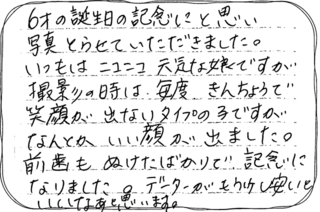 6才の誕生日の記念にと思い
写真とらせていただきました。
いつもは ニコニコ 元気な娘ですが
撮影の時は 毎度 きんちょうで
笑顔が 出ないタイプの子ですが
なんとか いい顔が 出ました。
前歯も ぬけたばかりで 記念に
なりました。データーがもう少し安いと
いいなあと思います。